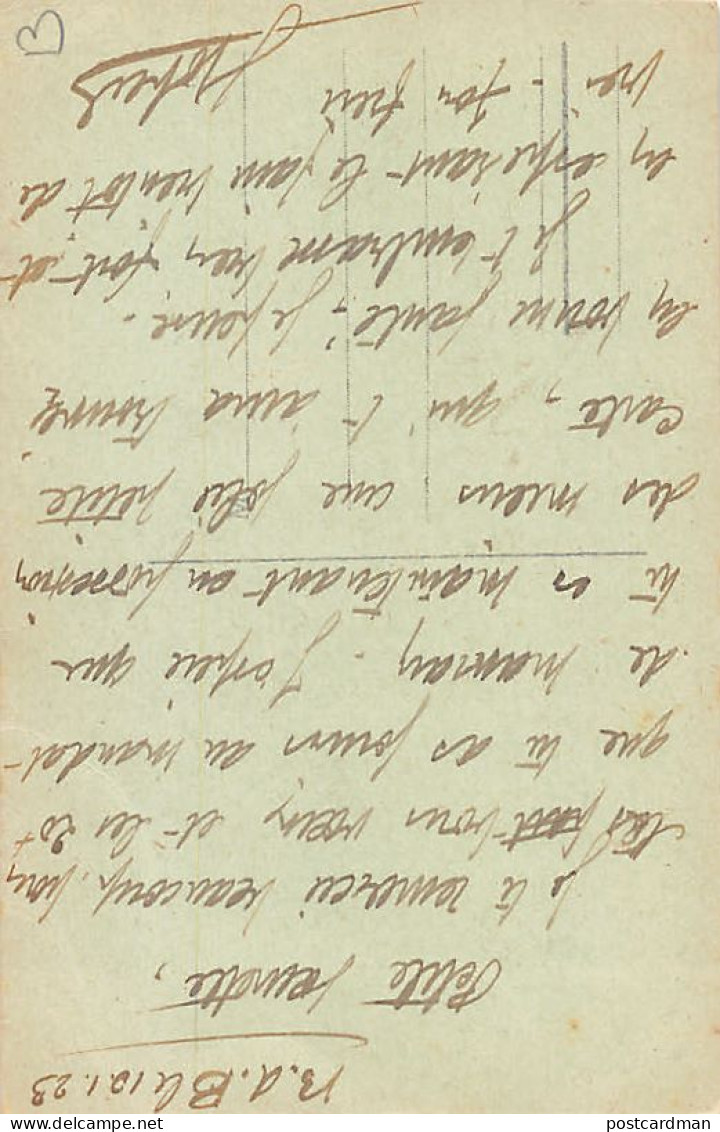 B.d.B le 10.1.23
Petite sœurette,
Je te remercie beaucoup, pour
tes bons vœux et les 20f
que tu as joints au mandat
de maman. J'espère que
tu es maintenant en possession
des miens une jolie petite
carte, qui t'aura trouvé
en bonne santé, je pense.
Je t'embrasse bien fort et
en espérant le faire bientôt de
vrai. Ton frère
postcardman